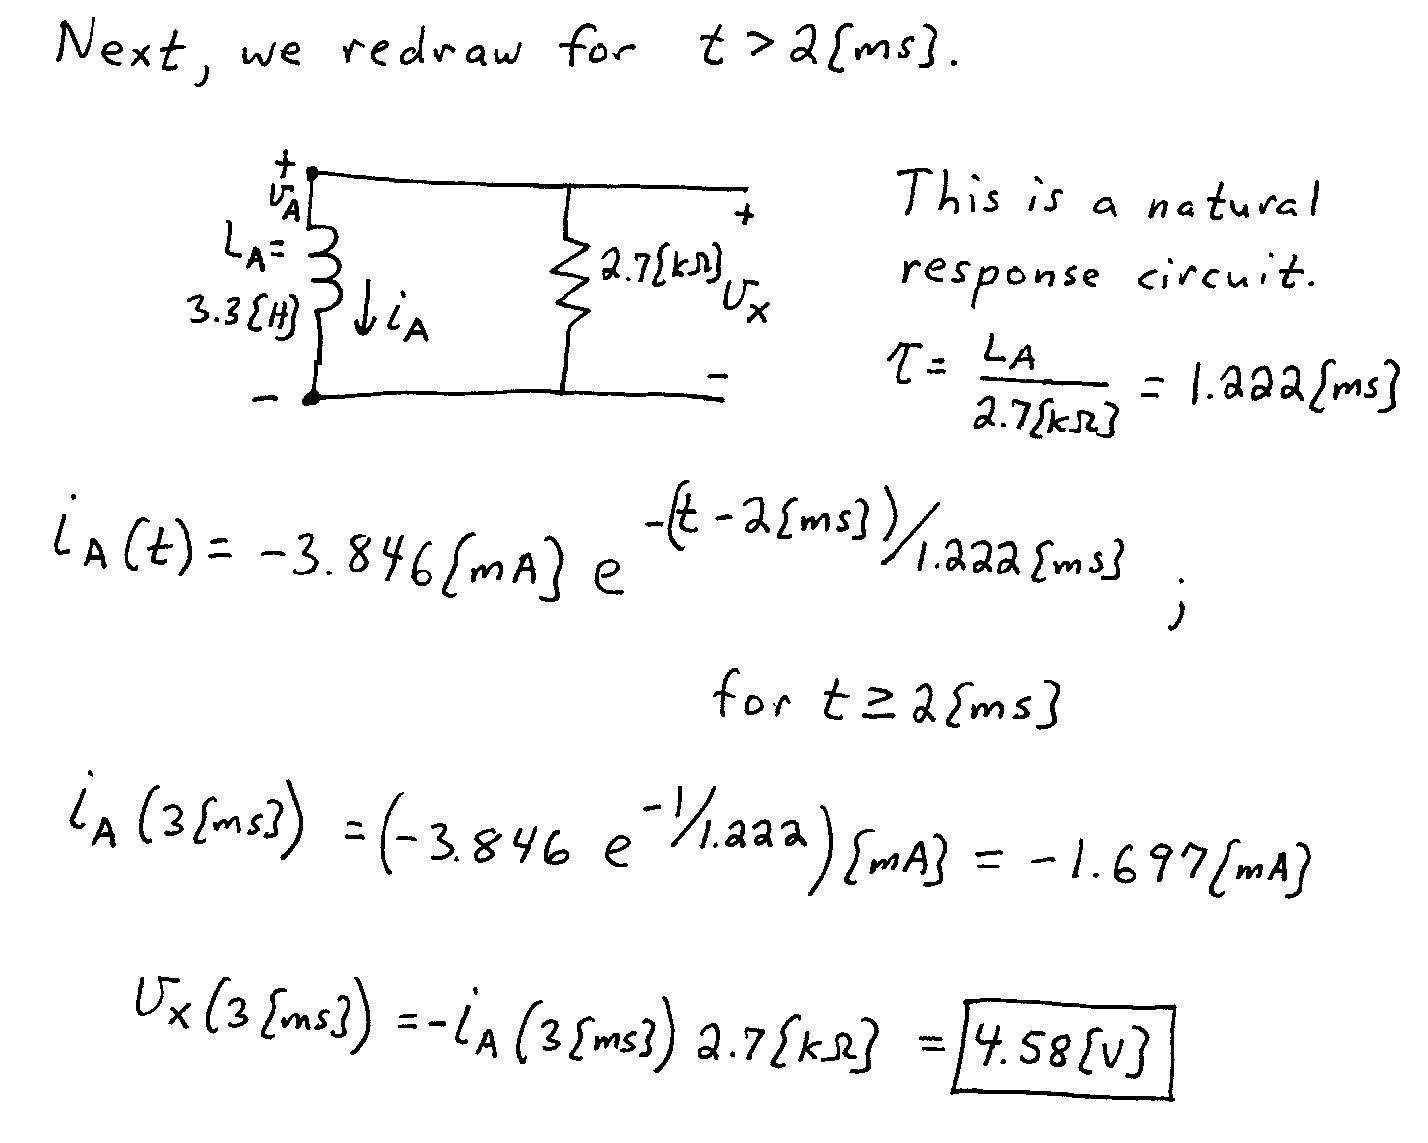 Next, we redraw for t > 2[ms].
+
v_A
L_A =
3.3[H]
i_A
-
2.7[kΩ]
+
v_x
-
This is a natural
response circuit.
τ = L_A / 2.7[kΩ] = 1.222[ms]
i_A(t) = -3.846[mA] e^-(t-2[ms])/1.222[ms] ;
for t ≥ 2[ms]
i_A(3[ms]) = (-3.846 e^-1/1.222)[mA] = -1.697[mA]
v_x(3[ms]) = -i_A(3[ms]) 2.7[kΩ] = 4.58[V]